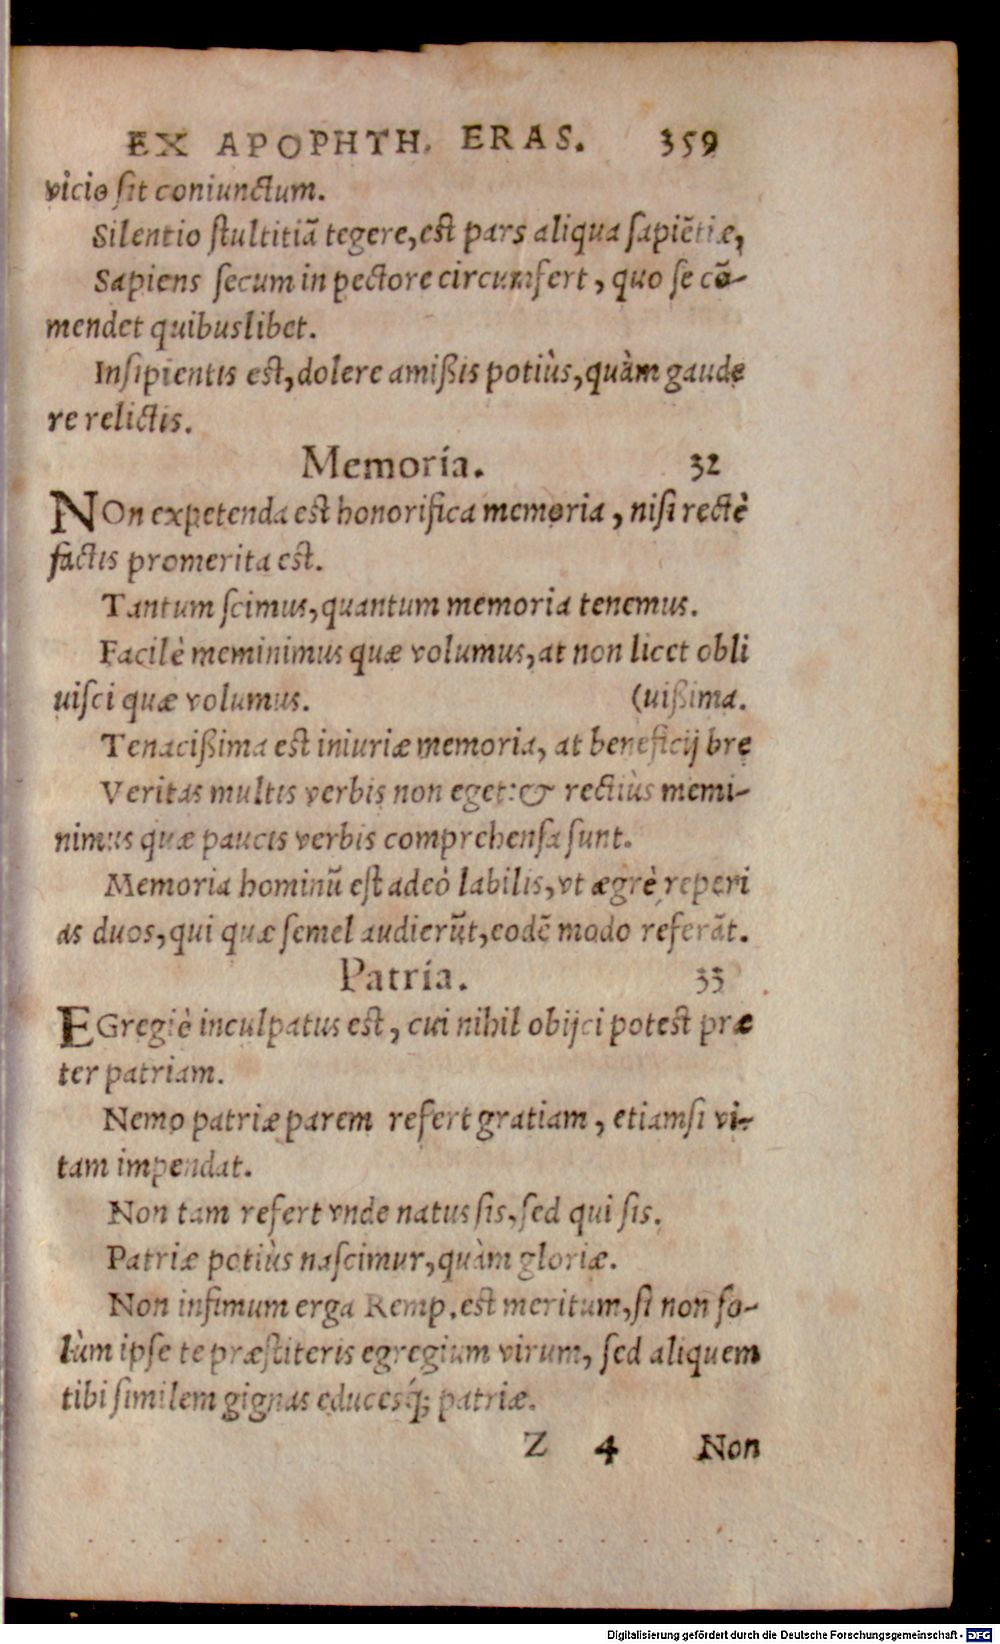 EX APOPHTH. ERAS. 359
vicio ſit coniunctum.
Silentio ſtultitiã tegere, eſt pars aliqua ſapiẽtiæ,
Sapiens ſecum in pectore circumfert, quo ſe cõ-
mendet quibuslibet.
Inſipientis eſt, dolere amißis potiùs, quàm gaude
re relictis.
Memoria. 32
NOn expetenda est honorifica memoria, niſi rectè
factis promerita est.
Tantum ſcimus, quantum memoria tenemus.
Facilè meminimus quæ volumus, at non licet obli
uiſci quæ volumus. (uißima.
Tenacißima est iniuriæ memoria, at beneficij bre
Veritas multis verbis non eget: & rectiùs memi-
nimus quæ paucis verbis comprehenſa ſunt.
Memoria hominũ eſt adeò labilis, vt ægrè reperi
as duos, qui quæ ſemel audierũt, eodẽ modo referãt.
Patria. 33
EGregiè inculpatus est, cui nihil obijci potest præ
ter patriam.
Nemo patriæ parem refert gratiam, etiamſi vi-
tam impendat.
Non tam refert vnde natus ſis, ſed qui ſis.
Patriæ potiùs naſcimur, quàm gloriæ.
Non infimum erga Remp. est meritum, ſi non ſo-
lùm ipſe te præſtiteris egregium virum, ſed aliquem
tibi ſimilem gignas educesq́; patriæ.
Z 4 Non
Digitalisierung gefördert durch die Deutsche Forschungsgemeinschaft - DFG